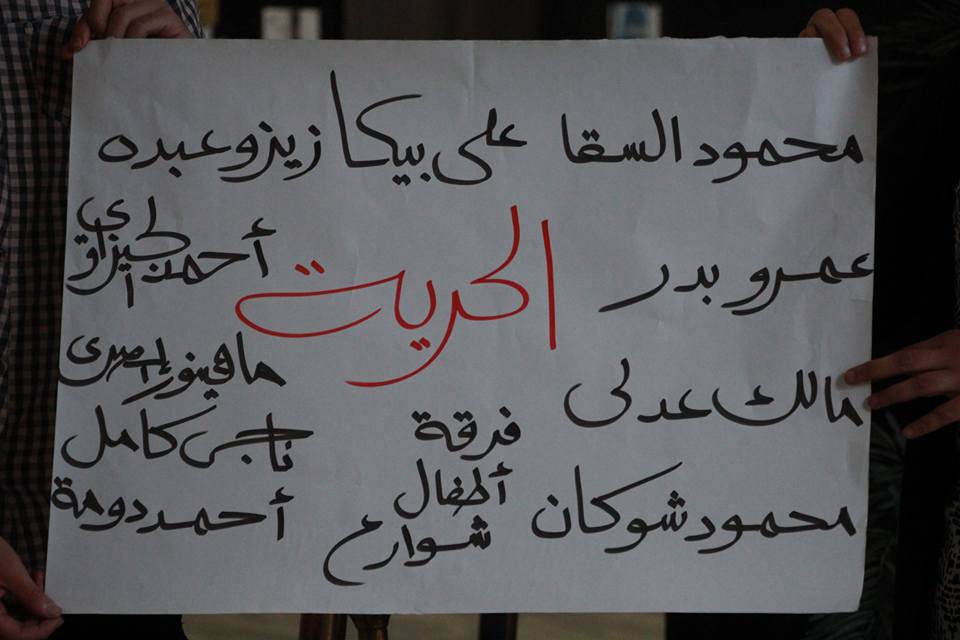 محمود السقا على بيكا زيزو عبده
عمرو بدر
الحرية
أحمد الجيزاوي
مالك عدلى
ماهينور المصرى
فرقة
أطفال
شوارع
ناجى كامل
محمود شوكان
أحمد دومة